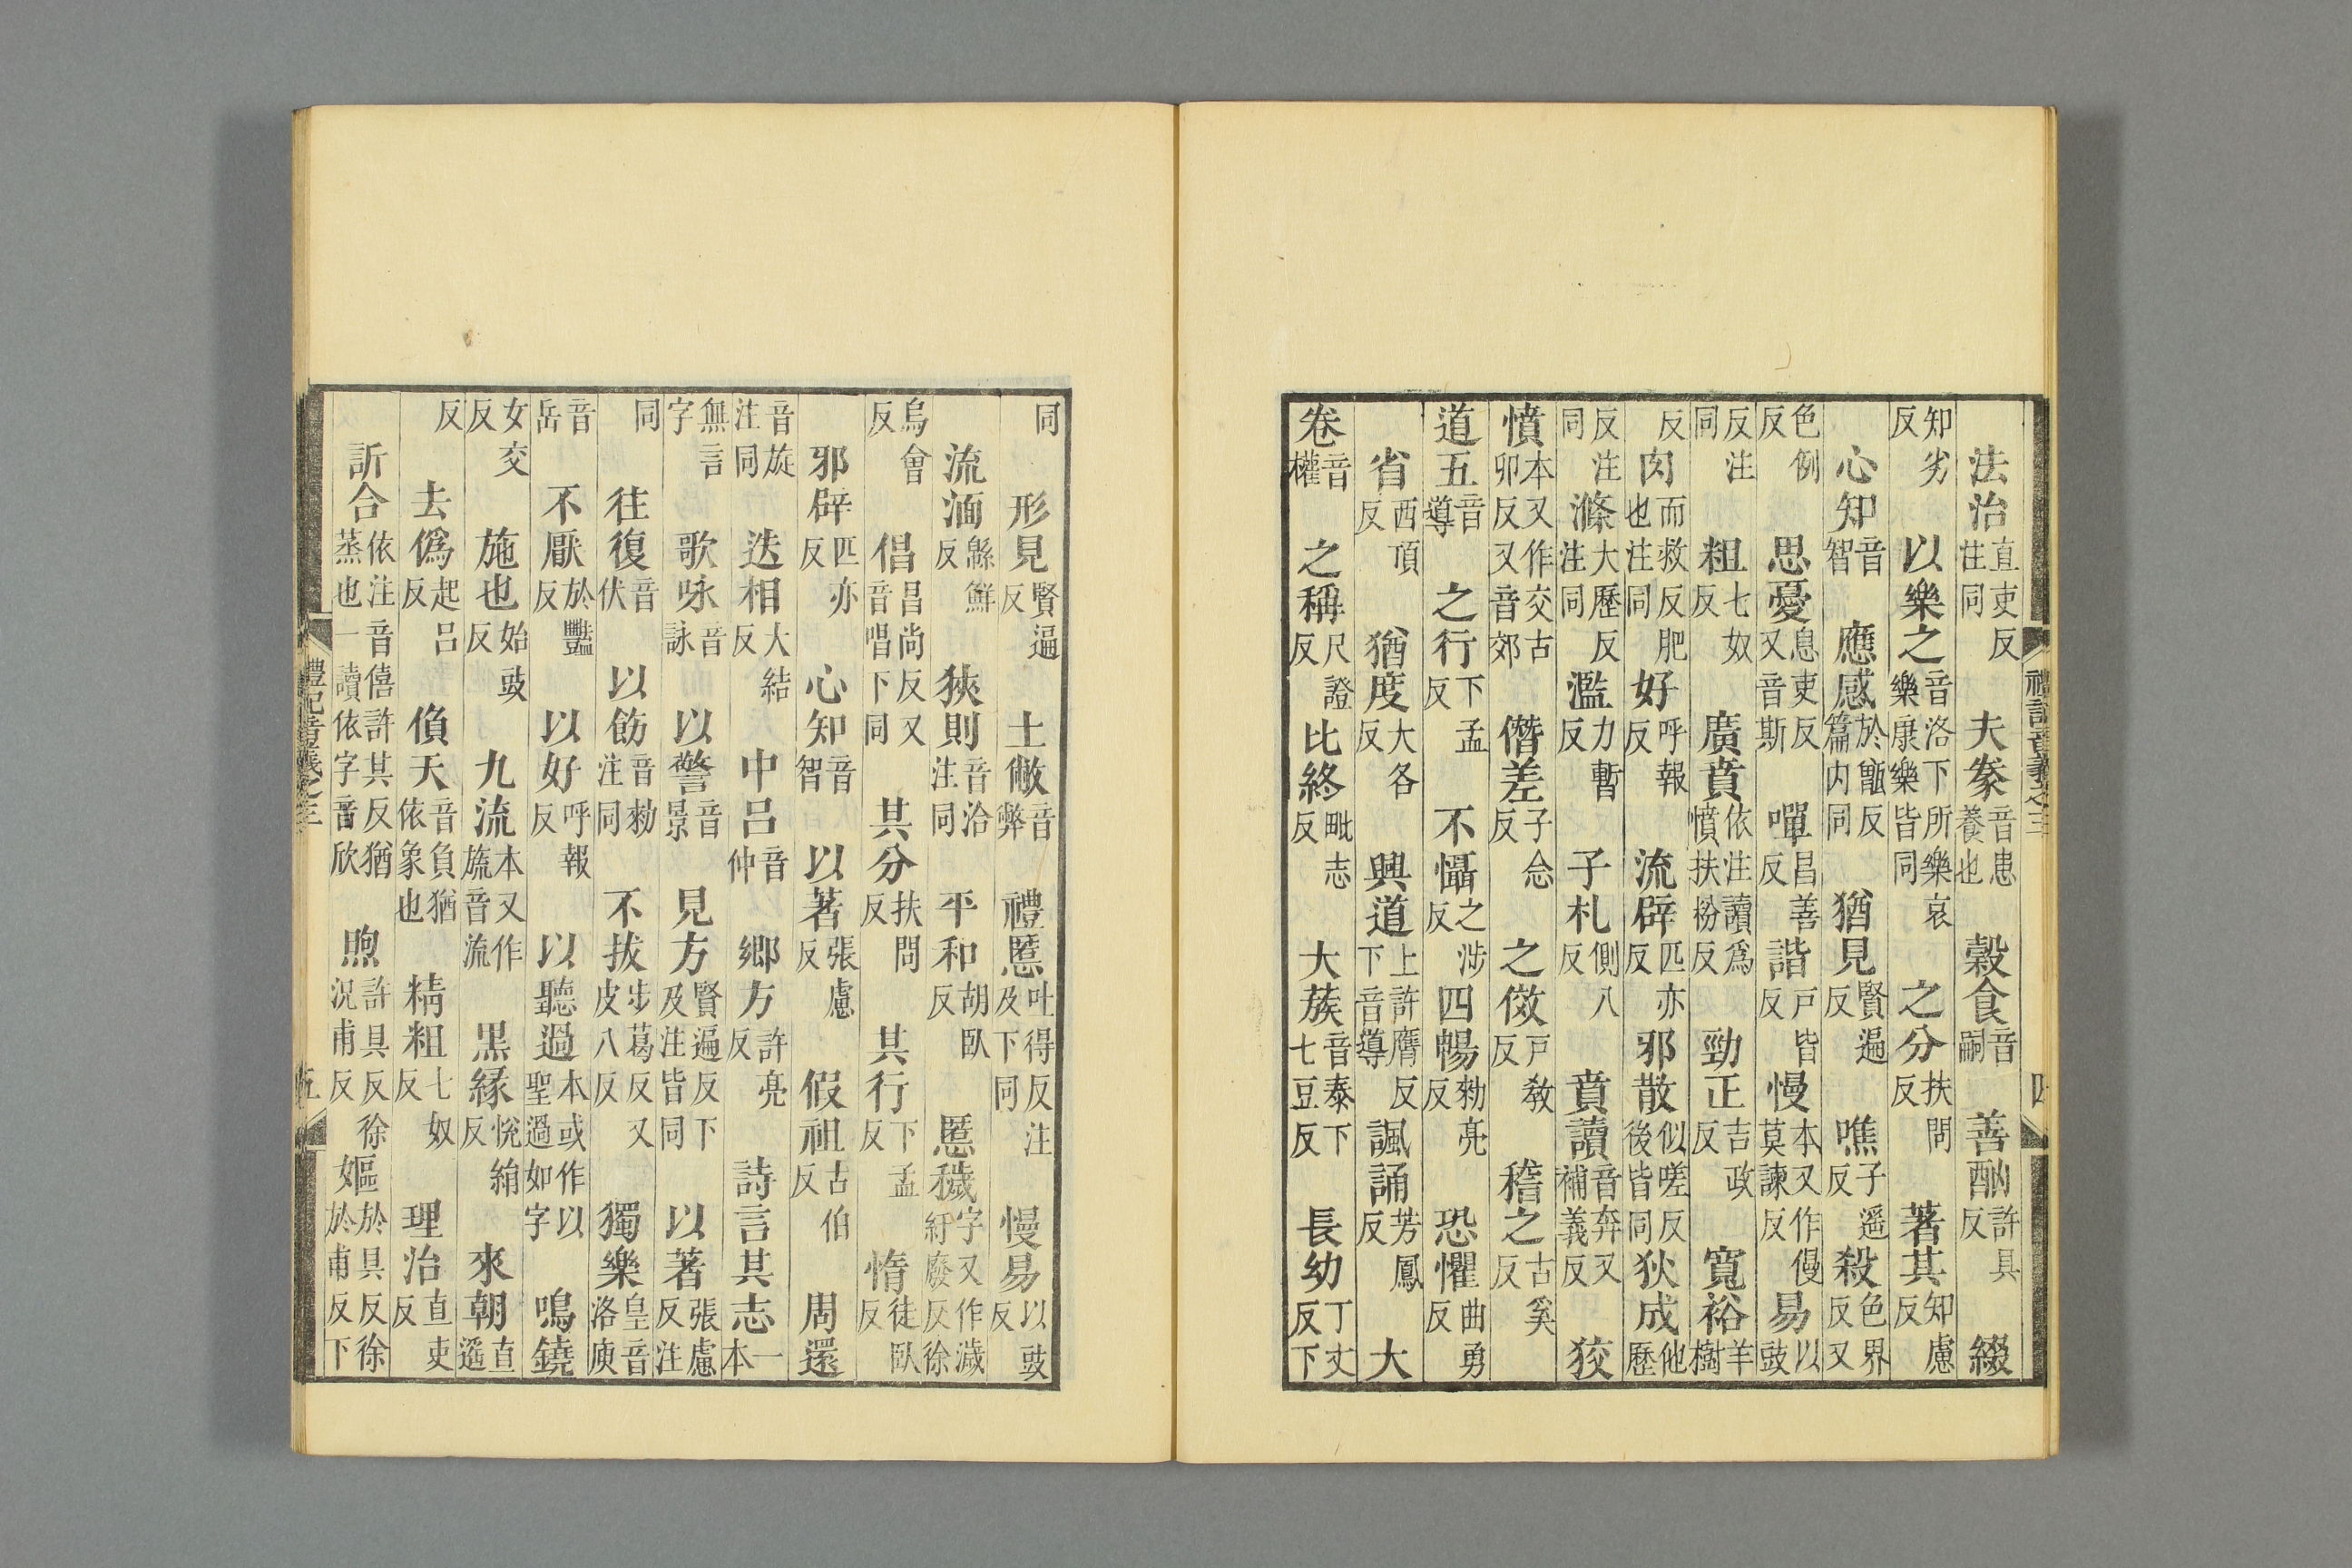 法治直吏反注同夫豢音患養也穀食音嗣善酗許具反綴
知劣反以樂之音洛下所樂哀樂康樂皆同之分扶問反著其知慮反
心知音智應感於甑反篇内同猶見賢遍反噍子遥反殺色界反又
色例反思憂息吏反又音斯嘽昌善反諧戶皆反慢本又作僈莫諫反易以豉
反注同粗七奴反廣賁依注讀爲憤扶粉反勁正吉政反寬裕羊樹
反肉而救反肥也注同好呼報反流辟匹亦反邪散似嗟反後皆同狄成他歷
反注同滌大歷反注同濫力暫反子札側八反賁讀音奔又補義反狡
憤本又作交古卯反又音郊僭差子念反之傚戶敎反稽之古奚反
道五音導之行下孟反不懾之涉反四暢勑亮反恐懼曲勇反
省西頂反猶度大各反興道上許膺反下音導諷誦芳鳳反大
卷音權之稱尺證反比終毗志反大蔟音泰下七豆反長幼丁丈反下
禮記音義之三
同形見賢遍反土敝音弊禮慝吐得反注及下同慢易以豉反
流湎緜鮮反狹則音洽注同平和胡臥反慝穢字又作濊紆廢反徐
烏會反倡昌尚反又音唱下同其分扶問反其行下孟反惰徒臥反
邪辟匹亦反心知音智以著張慮反假祖古伯反周還
音旋注同迭相大結反中呂音仲鄉方許亮反詩言其志一本
無言字歌咏音詠以警音景見方賢遍反下及注皆同以著張慮反注
同往復音伏以飭音勑注同不拔步葛反又皮八反獨樂皇音洛庾
音岳不厭於豔反以好呼報反以聽過本或作以聖過如字鳴鐃
女交反施也始豉反九流本又作旒音流黑緣悅絹反來朝直遥
反去僞起呂反偩天音負猶依象也精粗七奴反理治直吏反
訢合依注音僖許其反猶蒸也一讀依字音欣煦許具反徐況甫反嫗於具反徐於甫反下
禮記音義之三
五